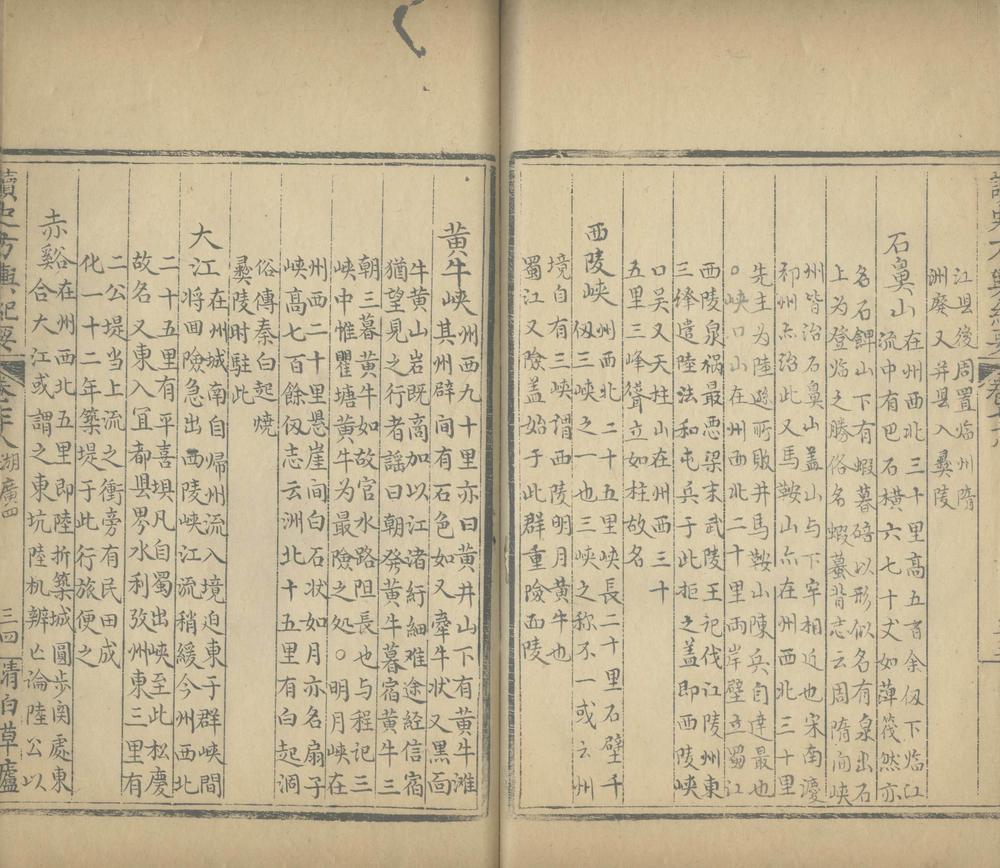 江县後周置临州隋
洲廃又并县入彞陵
石鼻山在州西北三十里高五百余仭下临江
流中有巴石横六七十丈如萍筏然亦
名石鼻山下有蝦暮碚以形似名有泉出石
上为登临之勝俗名蝦蟇背志云周隋间峡
州皆治石鼻山盖山与下牢相近也宋南渡
初州亦治此又馬鞍山亦在州西北三十里
先主为陸遜所敗井馬鞍山陳兵自達最也
○峡口山在州西北二十里両岸壁立蜀江
西陵泉祸最悪梁末武陵王祀伐江陵州東
三峰遣陸法和屯兵于此拒之蓋即西陵峡
口吴又天柱山在州西三十
五里三峰聳立如柱故名
西陵峡州西北二十五里峡長二十里石壁千
仭三峡之一也三峡之称不一或云州
境自有三峡謂西陵明月黄牛也
蜀江又險盖始于此群重險西陵
黄牛峡州西九十里亦曰黄井山下有黄牛滩
其州辟间有石色如又牽牛状又黒面
牛黄山岩既高加以江渚紆細难途経信宿
猶望見之行者謡曰朝発黄牛暮宿黄牛三
朝三暮黄牛如故官水路阻長也与程记三
峡中惟瞿塘黄牛为最險之処○明月峡在
州西二十里悬崖间白石状如月亦名扇子
峡高七百餘仭志云洲北十五里有白起洞
俗傳秦白起焼
彞陵时駐此
大江在州城南自帰州流入境迫東于群峡間
将回險急出西陵峡江流稍緩今州西北
二十五里有平喜垻凡自蜀出峡至此松慶
故名又東入宜都县界水利攷州東三里有
二公堤当上流之衝旁有民田成
化一十二年築堤于此行旅便之
赤谿在州西北五里即陸折築城圓步闵處東
合大江或謂之東坑陸机辨亡論陸公以
讀史方輿紀要
卷七十八
湖廣四
三四
清白草廬